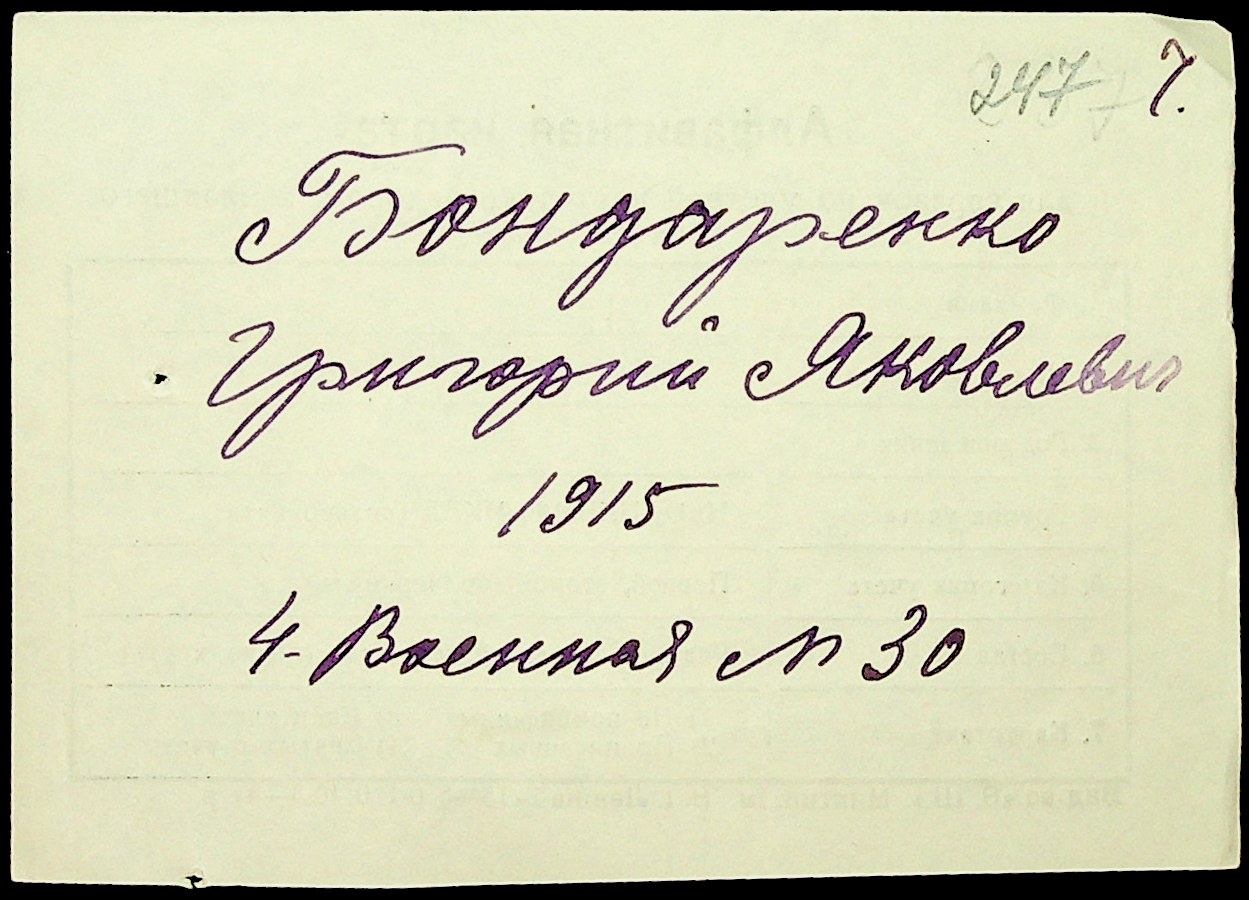 247 7.
Бондаренко
Григорий Яковлевич
1915
4-Военная № 30